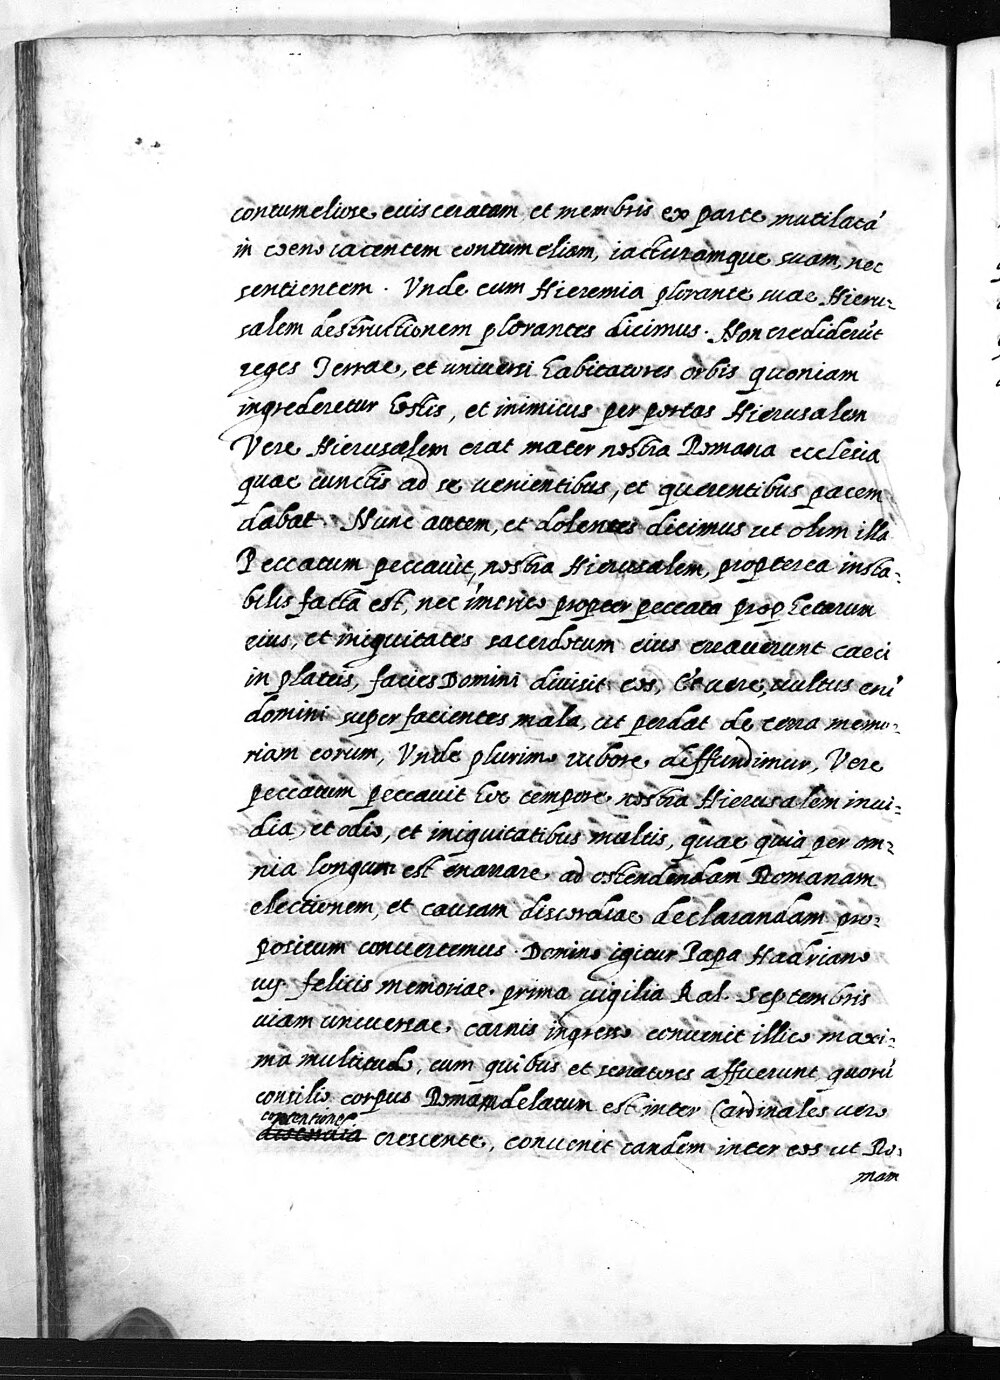 contumeliose euisceratam et membris ex parte mutilatā
in coeno iacentem contumeliam, iacturamque suam, nec
sentientem. Vnde cum Hieremia plorante suae Hieru-
salem destructionem plorantes dicimus. Non crediderūt
reges Terrae, et uniuersi habitatores orbis quoniam
ingrederetur hostis, et inimicus per portas Hierusalem
Vere Hierusalem erat mater nostra Romana ecclesia
quae cunctis ad se uenientibus, et querentibus pacem
dabat. Nunc autem, et dolentes dicimus ut olim illa
Peccatum peccauit, nostra Hierusalem, propterea insta-
bilis facta est, nec imerito propter peccata prophetarum
eius, et iniquitates sacerdotum eius erauerunt caeci
in plateis, facies Domini diuisit eos, Et uere, uultus eni
domini super facientes mala, ut perdat de terra memo-
riam eorum, Vnde plurimo rubore diffundimur, Vere
peccatum peccauit hoc tempore nostra Hierusalem inui-
dia, et odio, et iniquitatibus multis, quae quia per om-
nia longum est enarrare ad ostendendam Romanam
electionem, et causam discordiae declarandam pro-
positum conuertemus. Domino igitur Papa Hadriano
iiij felicis memoriae prima uigilia Kal. Septembris
uiam uniuersae carnis ingresso conuenit illico maxi-
ma multitudo, cum quibus et senatores affuerunt, quorū
consilio corpus Romam delatum est inter Cardinales uero
contentione
discordia crescente, conuenit tandem inter eos ut Ro-
mam